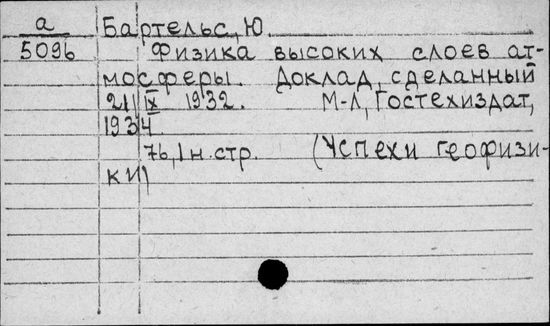 а
5096
Бартельс, Ю.
Физика высоких слоев ат-
мосферы. Доклад, сделанный
21/IX 1932. М-Л, Гостехиздат,
1934
76, 1 н. стр. (Успехи геофизи-
ки)